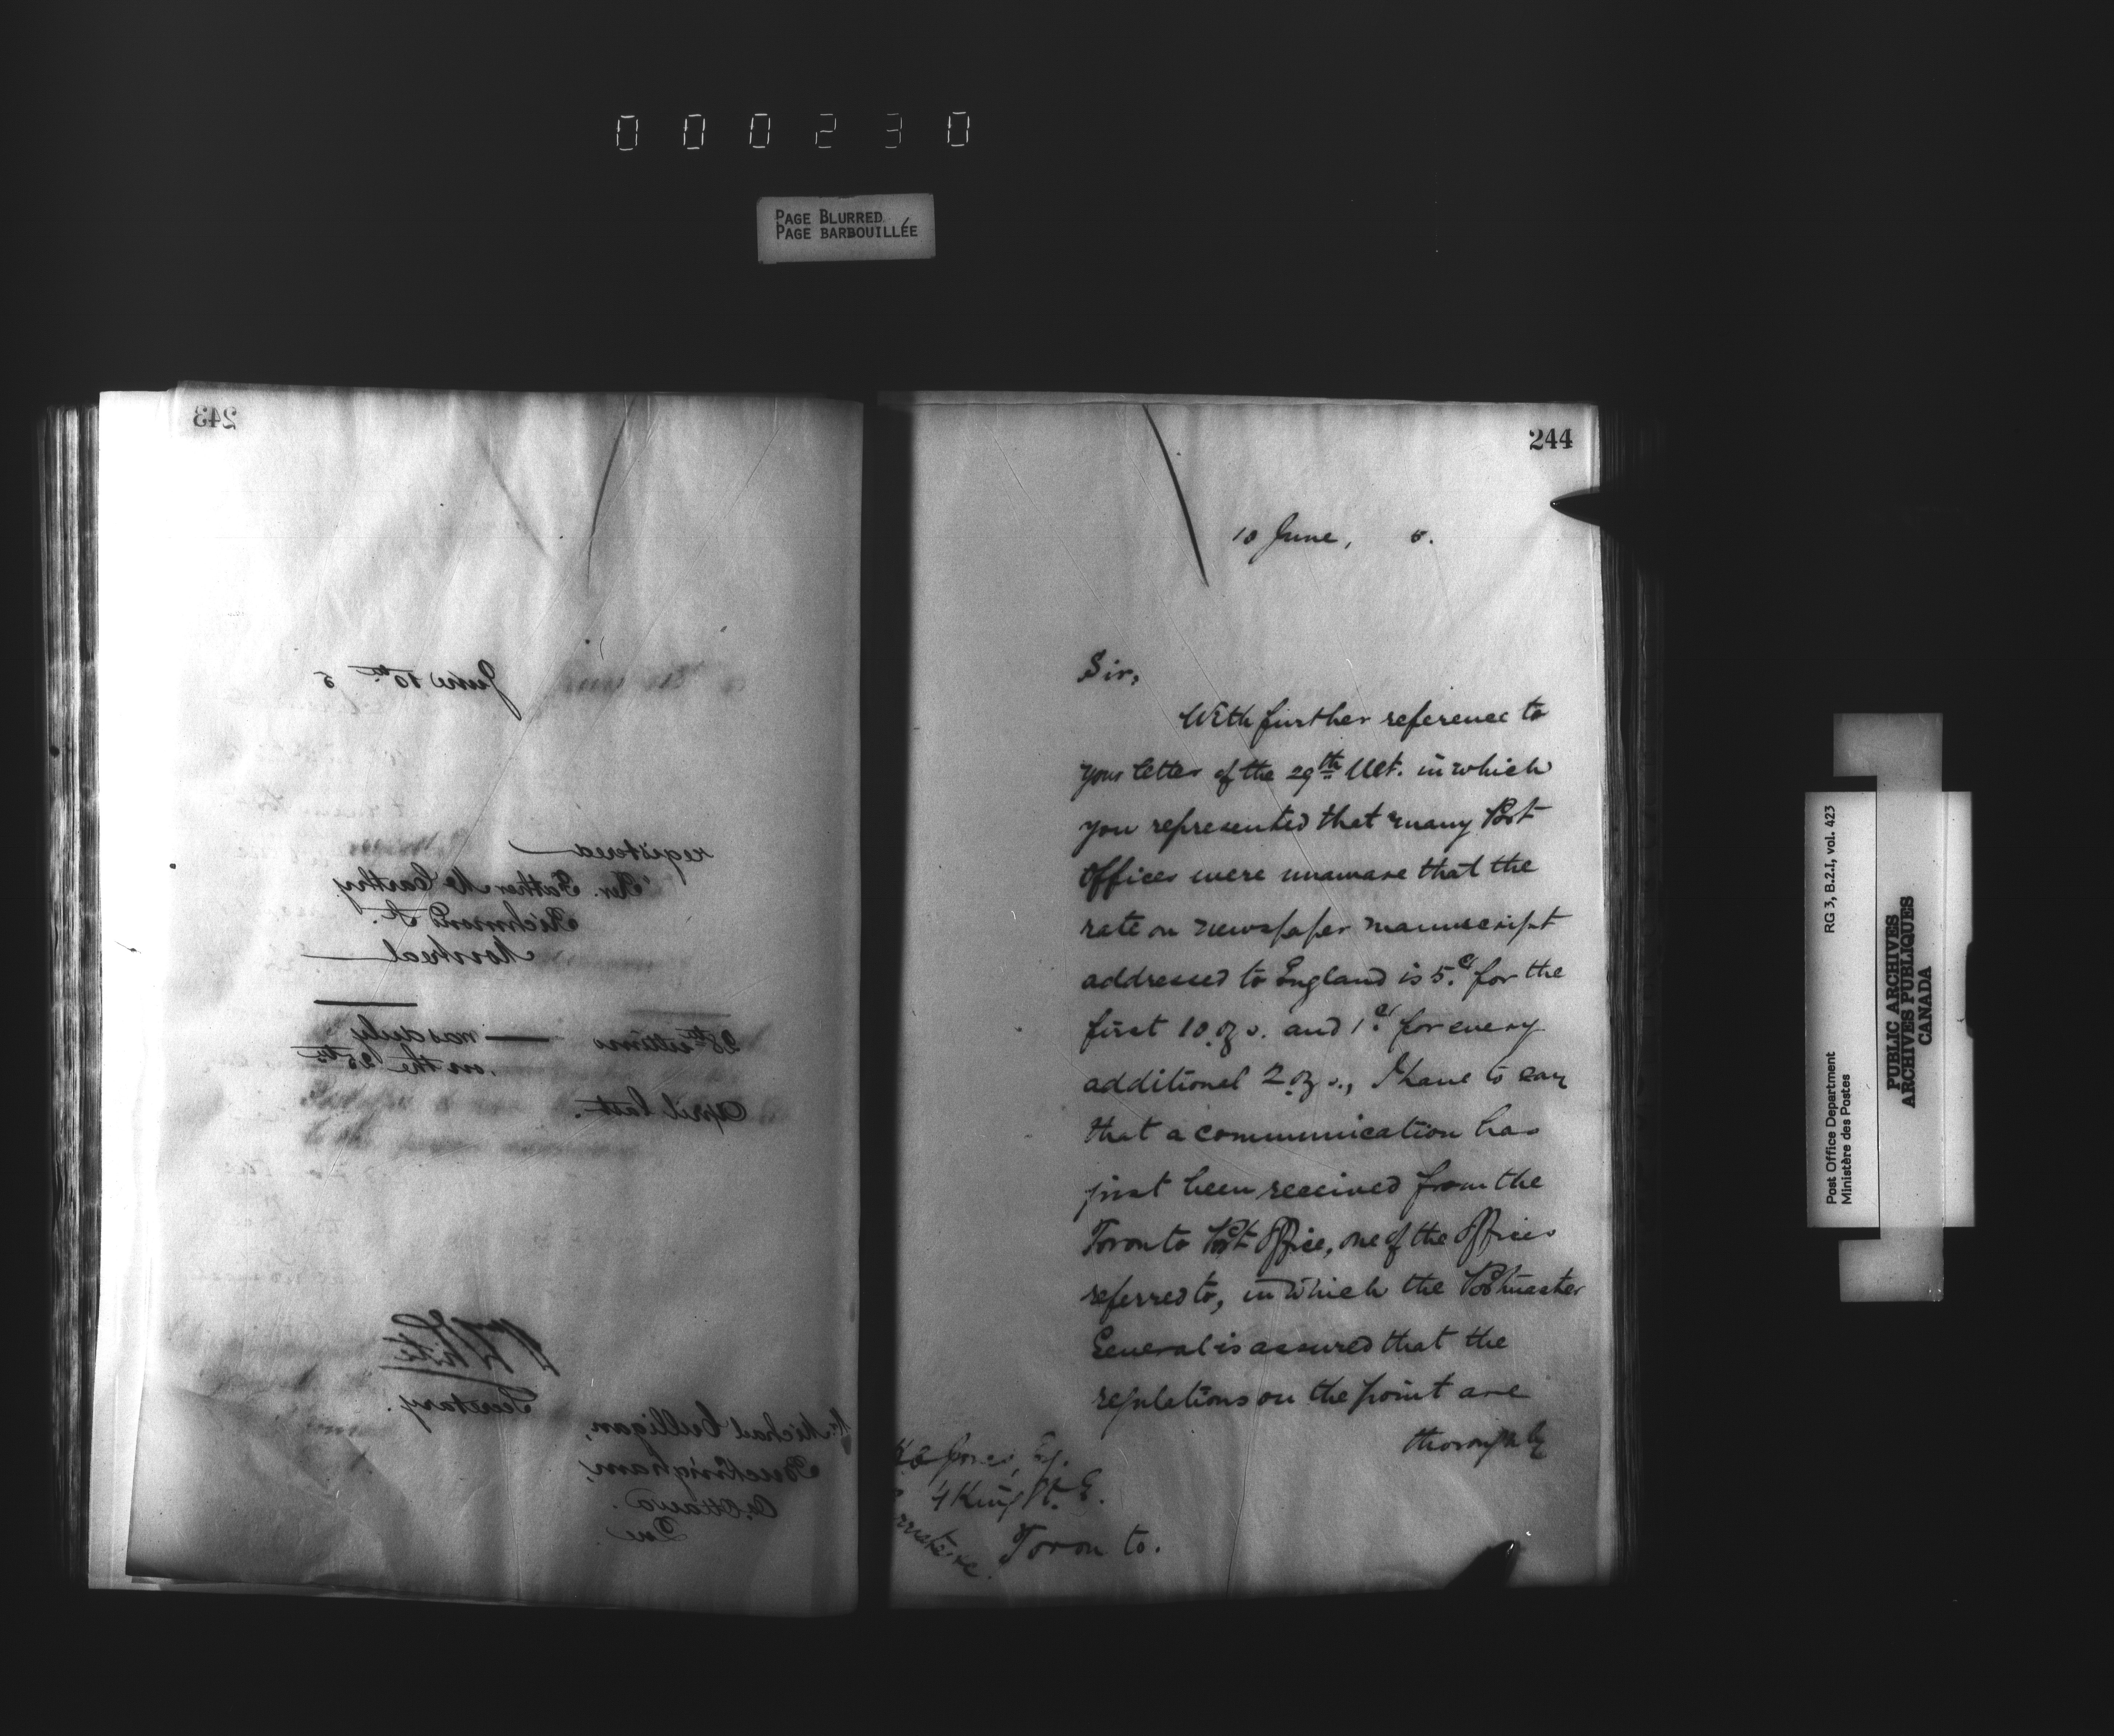 000230
PAGE BLURRED
PAGE BARBOUILLÉE
243
June 10th 5
registered
Rev. Father McCarthy
Richmond St.
Montreal
28th ultimo — was duly
on the 25th
April last.
WWhite
Secretary.
Mr Michael Culligan,
Buckingham,
Co. Ottawa.
Que
244
10 June, 5.
Sir,
With further reference to
your letter of the 29th Ult. in which
you represented that many Post
Offices were unaware that the
rate on newspaper manuscript
addressed to England is 5.c for the
first 10 ozs. and 1c. for every
additional 2 ozs., I have to say
that a communication has
just been received from the
Toronto Post Office, one of the Offices
referred to, in which the Postmaster
General is assured that the
regulations on the point are
thoroughly
Jones, Esq.
4 King St. E.
Toronto.
RG 3, B.2.I, vol. 423
Post Office Department
Ministère des Postes
PUBLIC ARCHIVES
ARCHIVES PUBLIQUES
CANADA